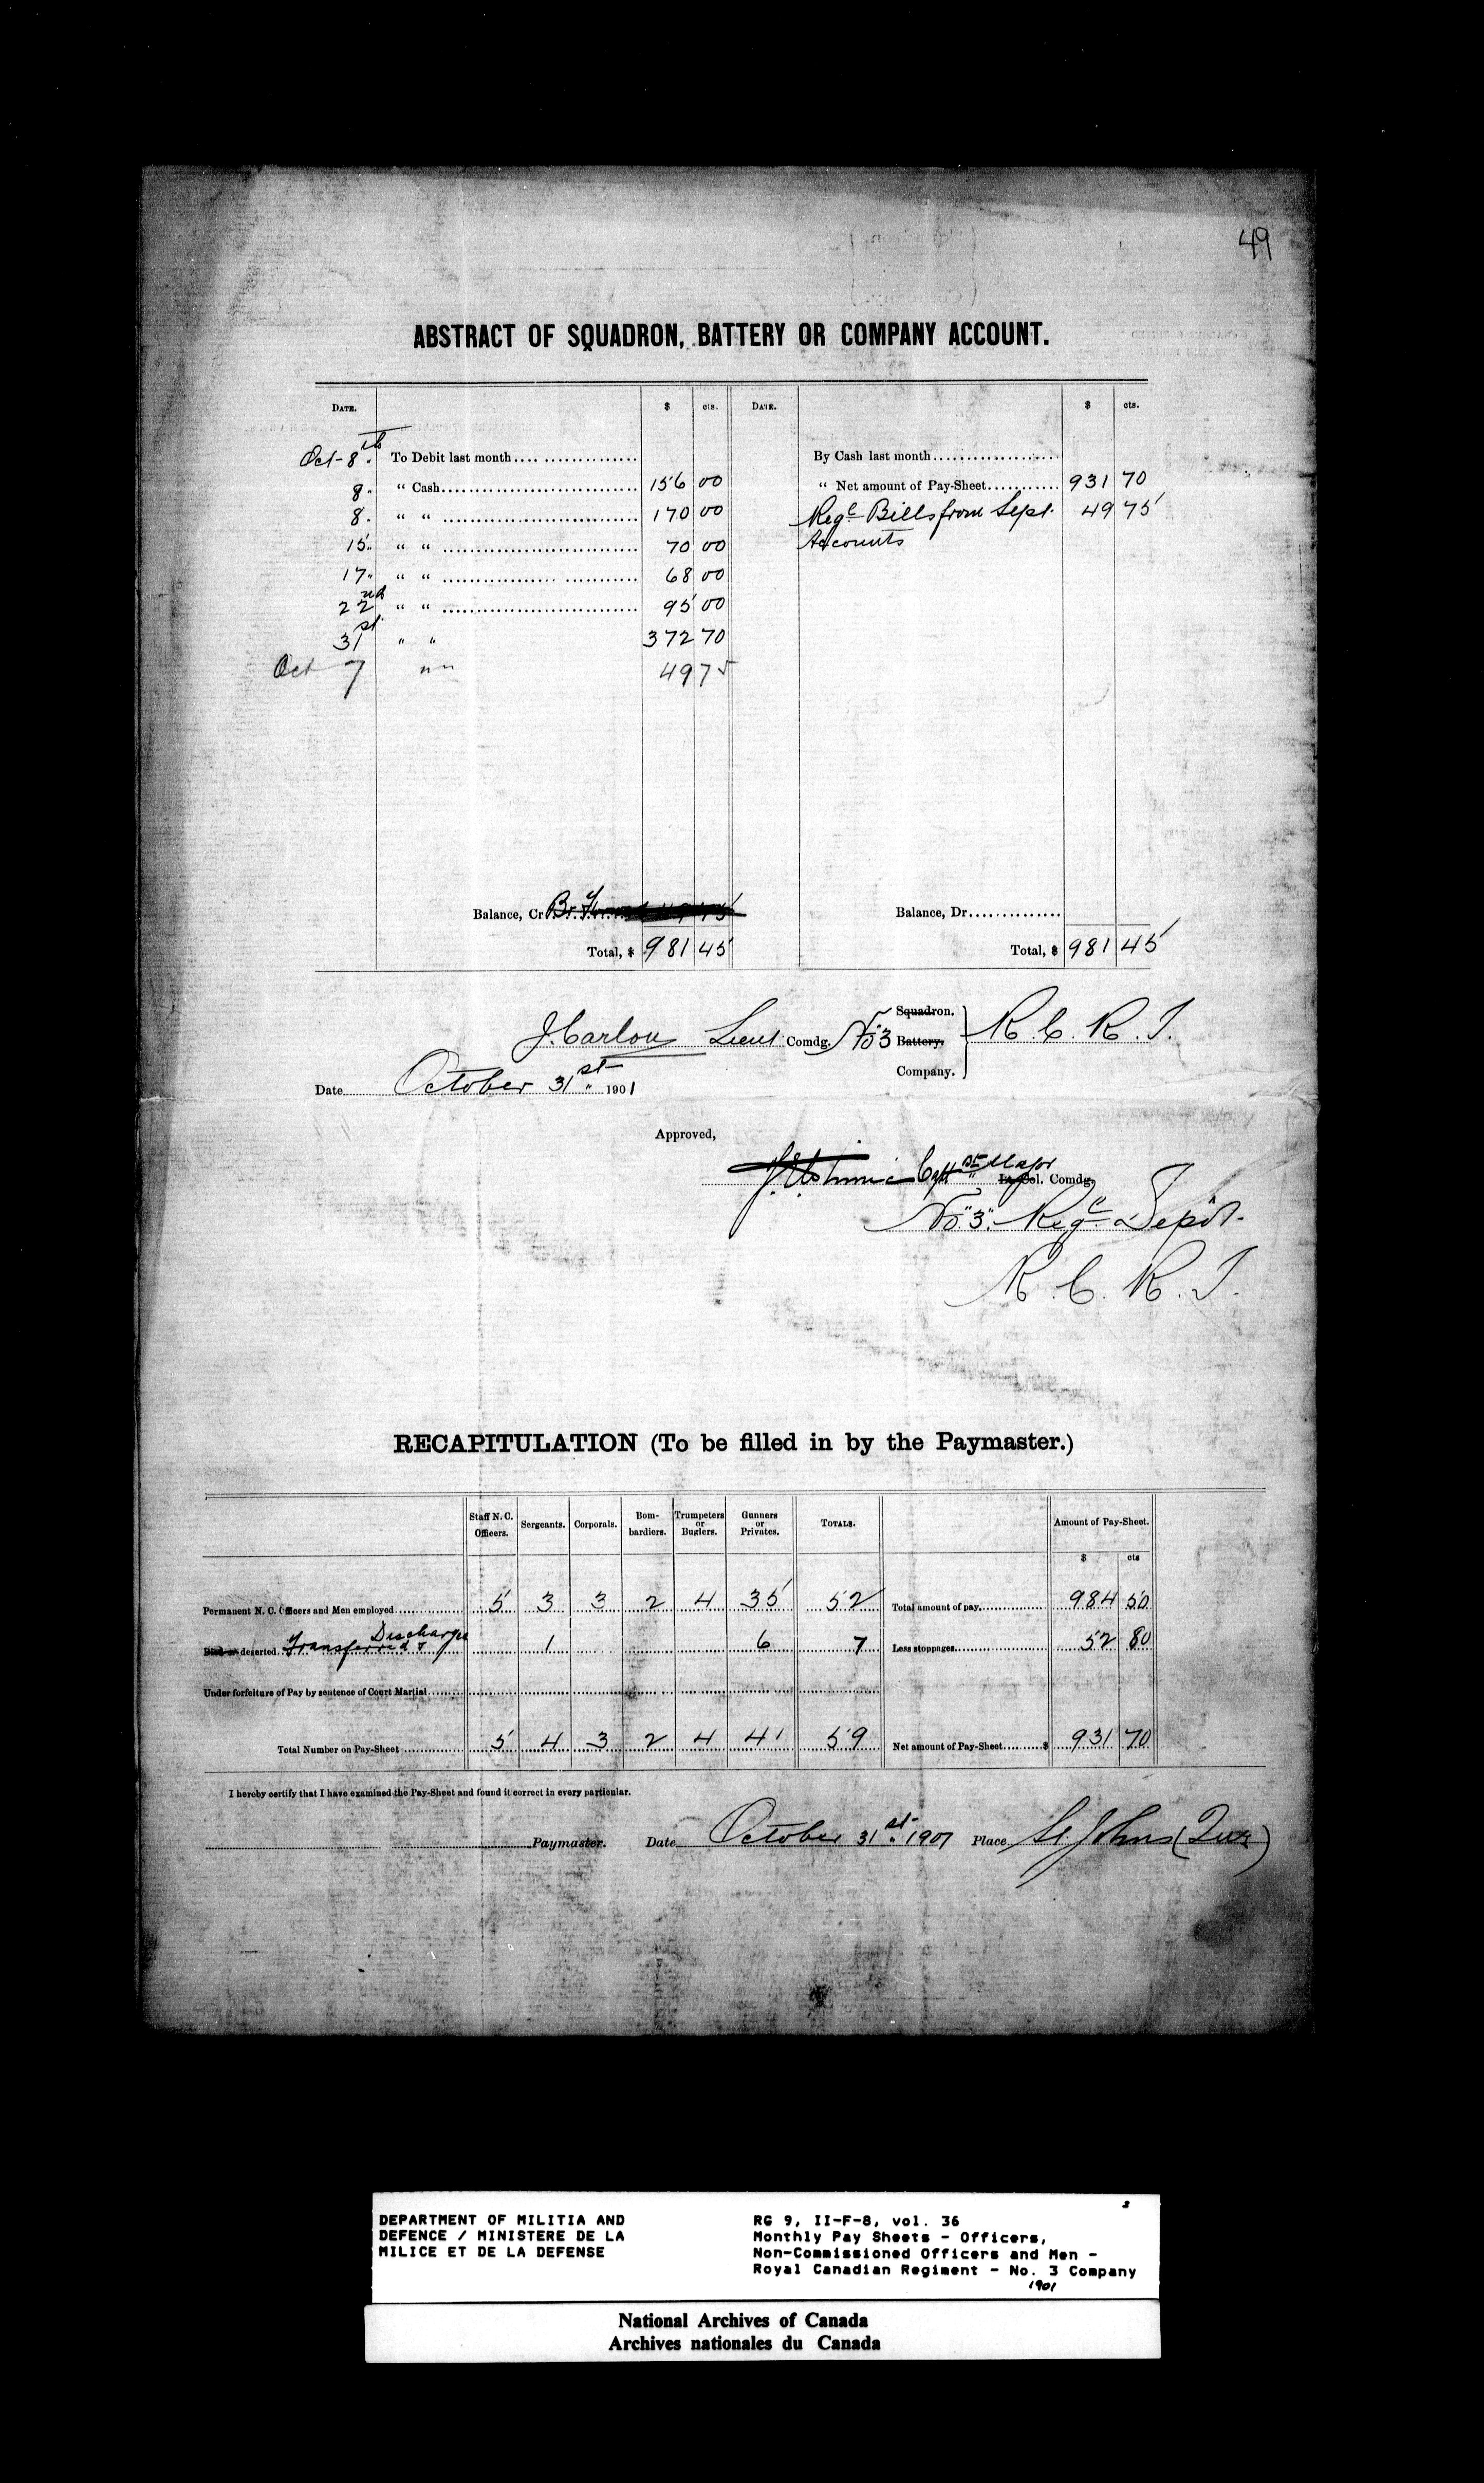 49
ABSTRACT OF SQUADRON, BATTERY OR COMPANY ACCOUNT.
DATE. $ cts. DATE. $ cts.
Oct-8th. To Debit last month By Cash last month
8. " Cash 156 00 " Net amount of Pay-Sheet 931 70
8. " " 170 00 Regl Bills from Sept. 49 75
15. " " 70 00 Accounts
17. " " 68 00
22nd " " 95 00
31st " " 372 70
Oct 7 " " 49 75
Balance, Cr Balance, Dr
Total, $ 981 45 Total, $ 981 45
Squadron.
J. Carlou Lieut Comdg. No 3 Battery. R. C. R. I.
Company.
Date October 31st 1901
Approved,
Capt. Bt Major Lt. Col. Comdg.
No "3". Regl Depôt.
R. C. R. I.
RECAPITULATION (To be filled in by the Paymaster.)
Staff N. C. Officers. Sergeants. Corporals. Bom-bardiers. Trumpeters or Buglers. Gunners or Privates. TOTALS. Amount of Pay-Sheet.
$ cts
Permanent N. C. Officers and Men employed 5 3 3 2 4 35 52 Total amount of pay 984 50
Died or deserted Transferred & Discharged 1 6 7 Less stoppages 52 80
Under forfeiture of Pay by sentence of Court Martial
Total Number on Pay-Sheet 5 4 3 2 4 41 59 Net amount of Pay-Sheet $ 931 70
I hereby certify that I have examined the Pay-Sheet and found it correct in every particular.
Paymaster. Date October 31st. 1901 Place St. Johns (Que)
2
DEPARTMENT OF MILITIA AND
DEFENCE / MINISTERE DE LA
MILICE ET DE LA DEFENSE
RG 9, II-F-8, vol. 36
Monthly Pay Sheets - Officers,
Non-Commissioned Officers and Men -
Royal Canadian Regiment - No. 3 Company
1901
National Archives of Canada
Archives nationales du Canada